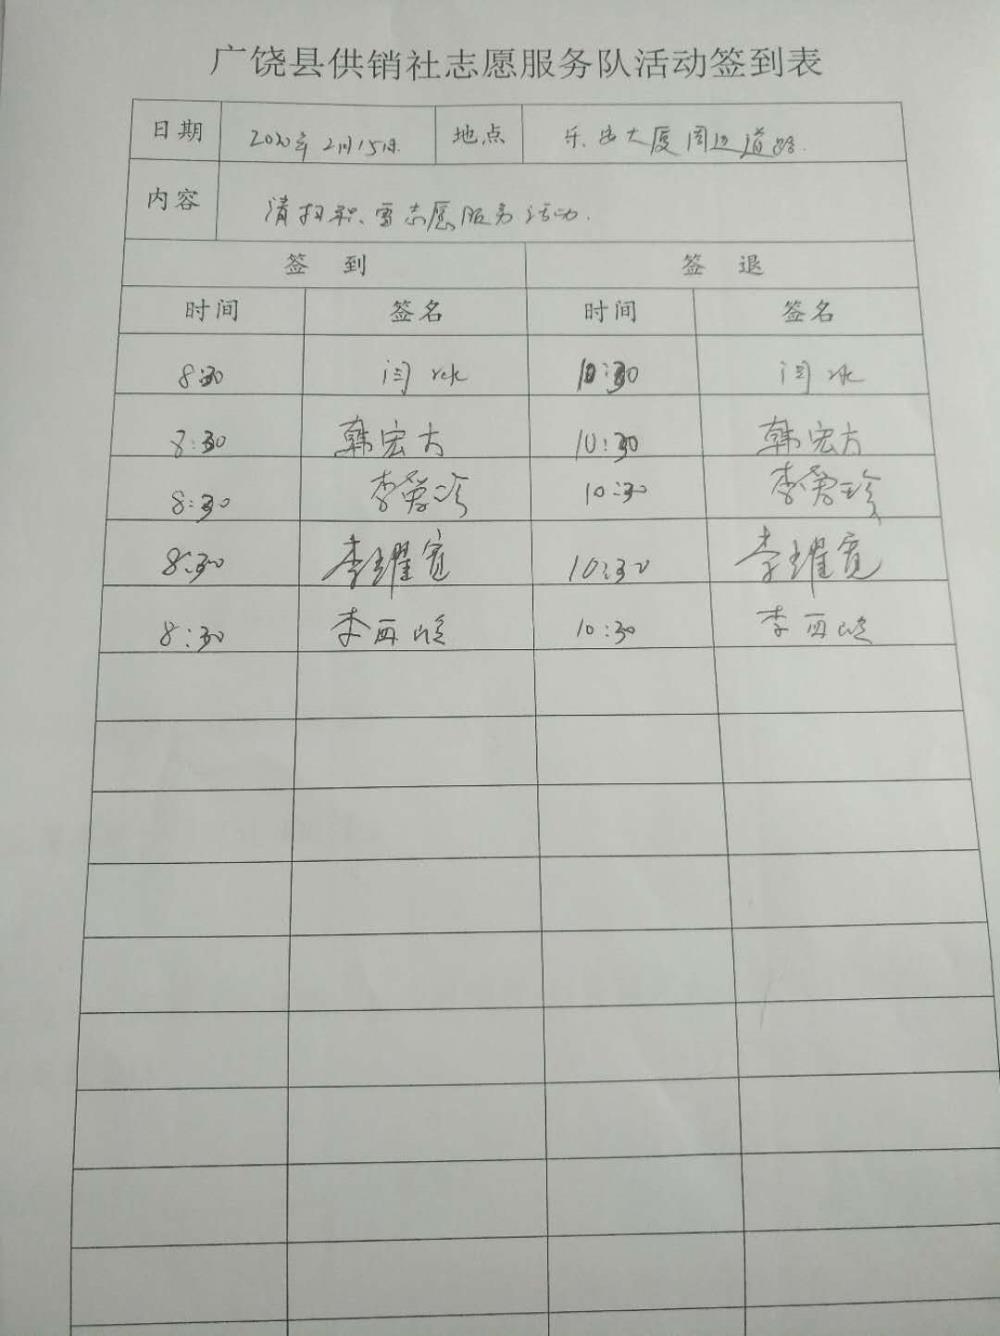 广饶县供销社志愿服务队活动签到表
日期 2020年2月15日. 地点 乐安大厦周边道路.
内容 清扫积雪志愿服务活动.
签 到 签 退
时间 签名 时间 签名
8:30 闫 10:30 闫
8:30 韩宏方 10:30 韩宏方
8:30 李爱珍 10:30 李爱珍
8:30 李耀宽 10:30 李耀宽
8:30 李西 10:30 李西